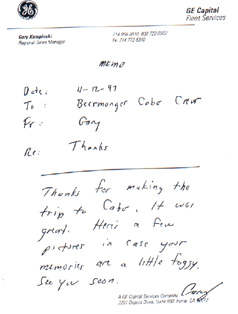 GE Capital
Fleet Services
Gary
Regional Sales Manager
MEMO
Date: 11-12-97
To: Beermonger Cabo Crew
Fr: Gary
Re: Thanks
Thanks for making the
trip to Cabo, It was
great. Here's a few
pictures in case your
memories are a little foggy.
See you soon.
Gary
A GE Capital Services Company